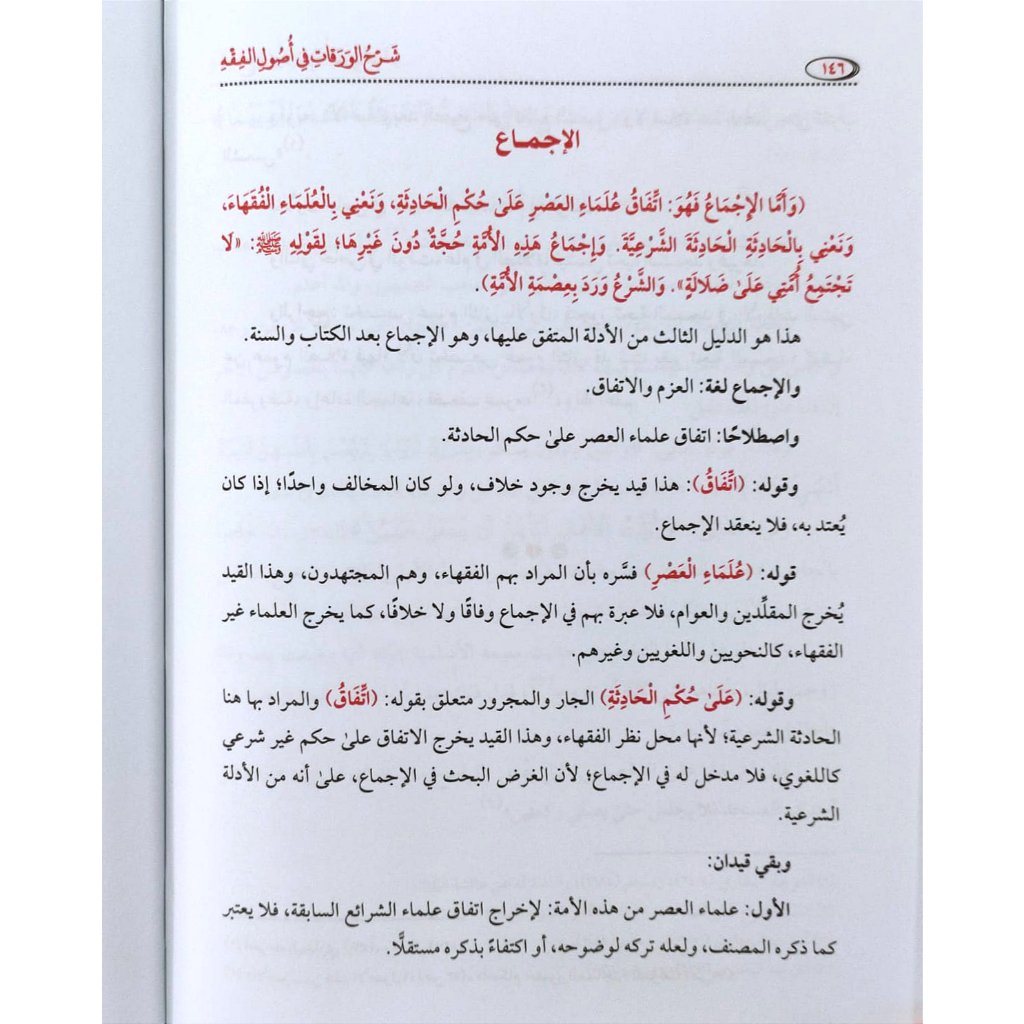 ١٤٦
شَرْحُ الوَرَقَاتِ فِي أُصُولِ الفِقْهِ
الإجماع
(وَأَمَّا الْإِجْمَاعُ فَهُوَ: اتِّفَاقُ عُلَمَاءِ العَصْرِ عَلَىٰ حُكْمِ الْحَادِثَةِ، وَنَعْنِي بِالْعُلَمَاءِ الْفُقَهَاءَ،
وَنَعْنِي بِالْحَادِثَةِ الْحَادِثَةَ الشَّرْعِيَّةَ. وَإِجْمَاعُ هَذِهِ الْأُمَّةِ حُجَّةٌ دُونَ غَيْرِهَا؛ لِقَوْلِهِ ﷺ: «لَا
تَجْتَمِعُ أُمَّتِي عَلَىٰ ضَلَالَةٍ». وَالشَّرْعُ وَرَدَ بِعِصْمَةِ الْأُمَّةِ).
هذا هو الدليل الثالث من الأدلة المتفق عليها، وهو الإجماع بعد الكتاب والسنة.
والإجماع لغة: العزم والاتفاق.
واصطلاحًا: اتفاق علماء العصر علىٰ حكم الحادثة.
وقوله: (اتِّفَاقُ): هذا قيد يخرج وجود خلاف، ولو كان المخالف واحدًا؛ إذا كان
يُعتد به، فلا ينعقد الإجماع.
قوله: (عُلَمَاءِ الْعَصْرِ) فسَّره بأن المراد بهم الفقهاء، وهم المجتهدون، وهذا القيد
يُخرج المقلِّدين والعوام، فلا عبرة بهم في الإجماع وفاقًا ولا خلافًا، كما يخرج العلماء غير
الفقهاء، كالنحويين واللغويين وغيرهم.
وقوله: (عَلَىٰ حُكْمِ الْحَادِثَةِ) الجار والمجرور متعلق بقوله: (اتِّفَاقُ) والمراد بها هنا
الحادثة الشرعية؛ لأنها محل نظر الفقهاء، وهذا القيد يخرج الاتفاق علىٰ حكم غير شرعي
كاللغوي، فلا مدخل له في الإجماع؛ لأن الغرض البحث في الإجماع، علىٰ أنه من الأدلة
الشرعية.
وبقي قيدان:
الأول: علماء العصر من هذه الأمة: لإخراج اتفاق علماء الشرائع السابقة، فلا يعتبر
كما ذكره المصنف، ولعله تركه لوضوحه، أو اكتفاءً بذكره مستقلًّا.